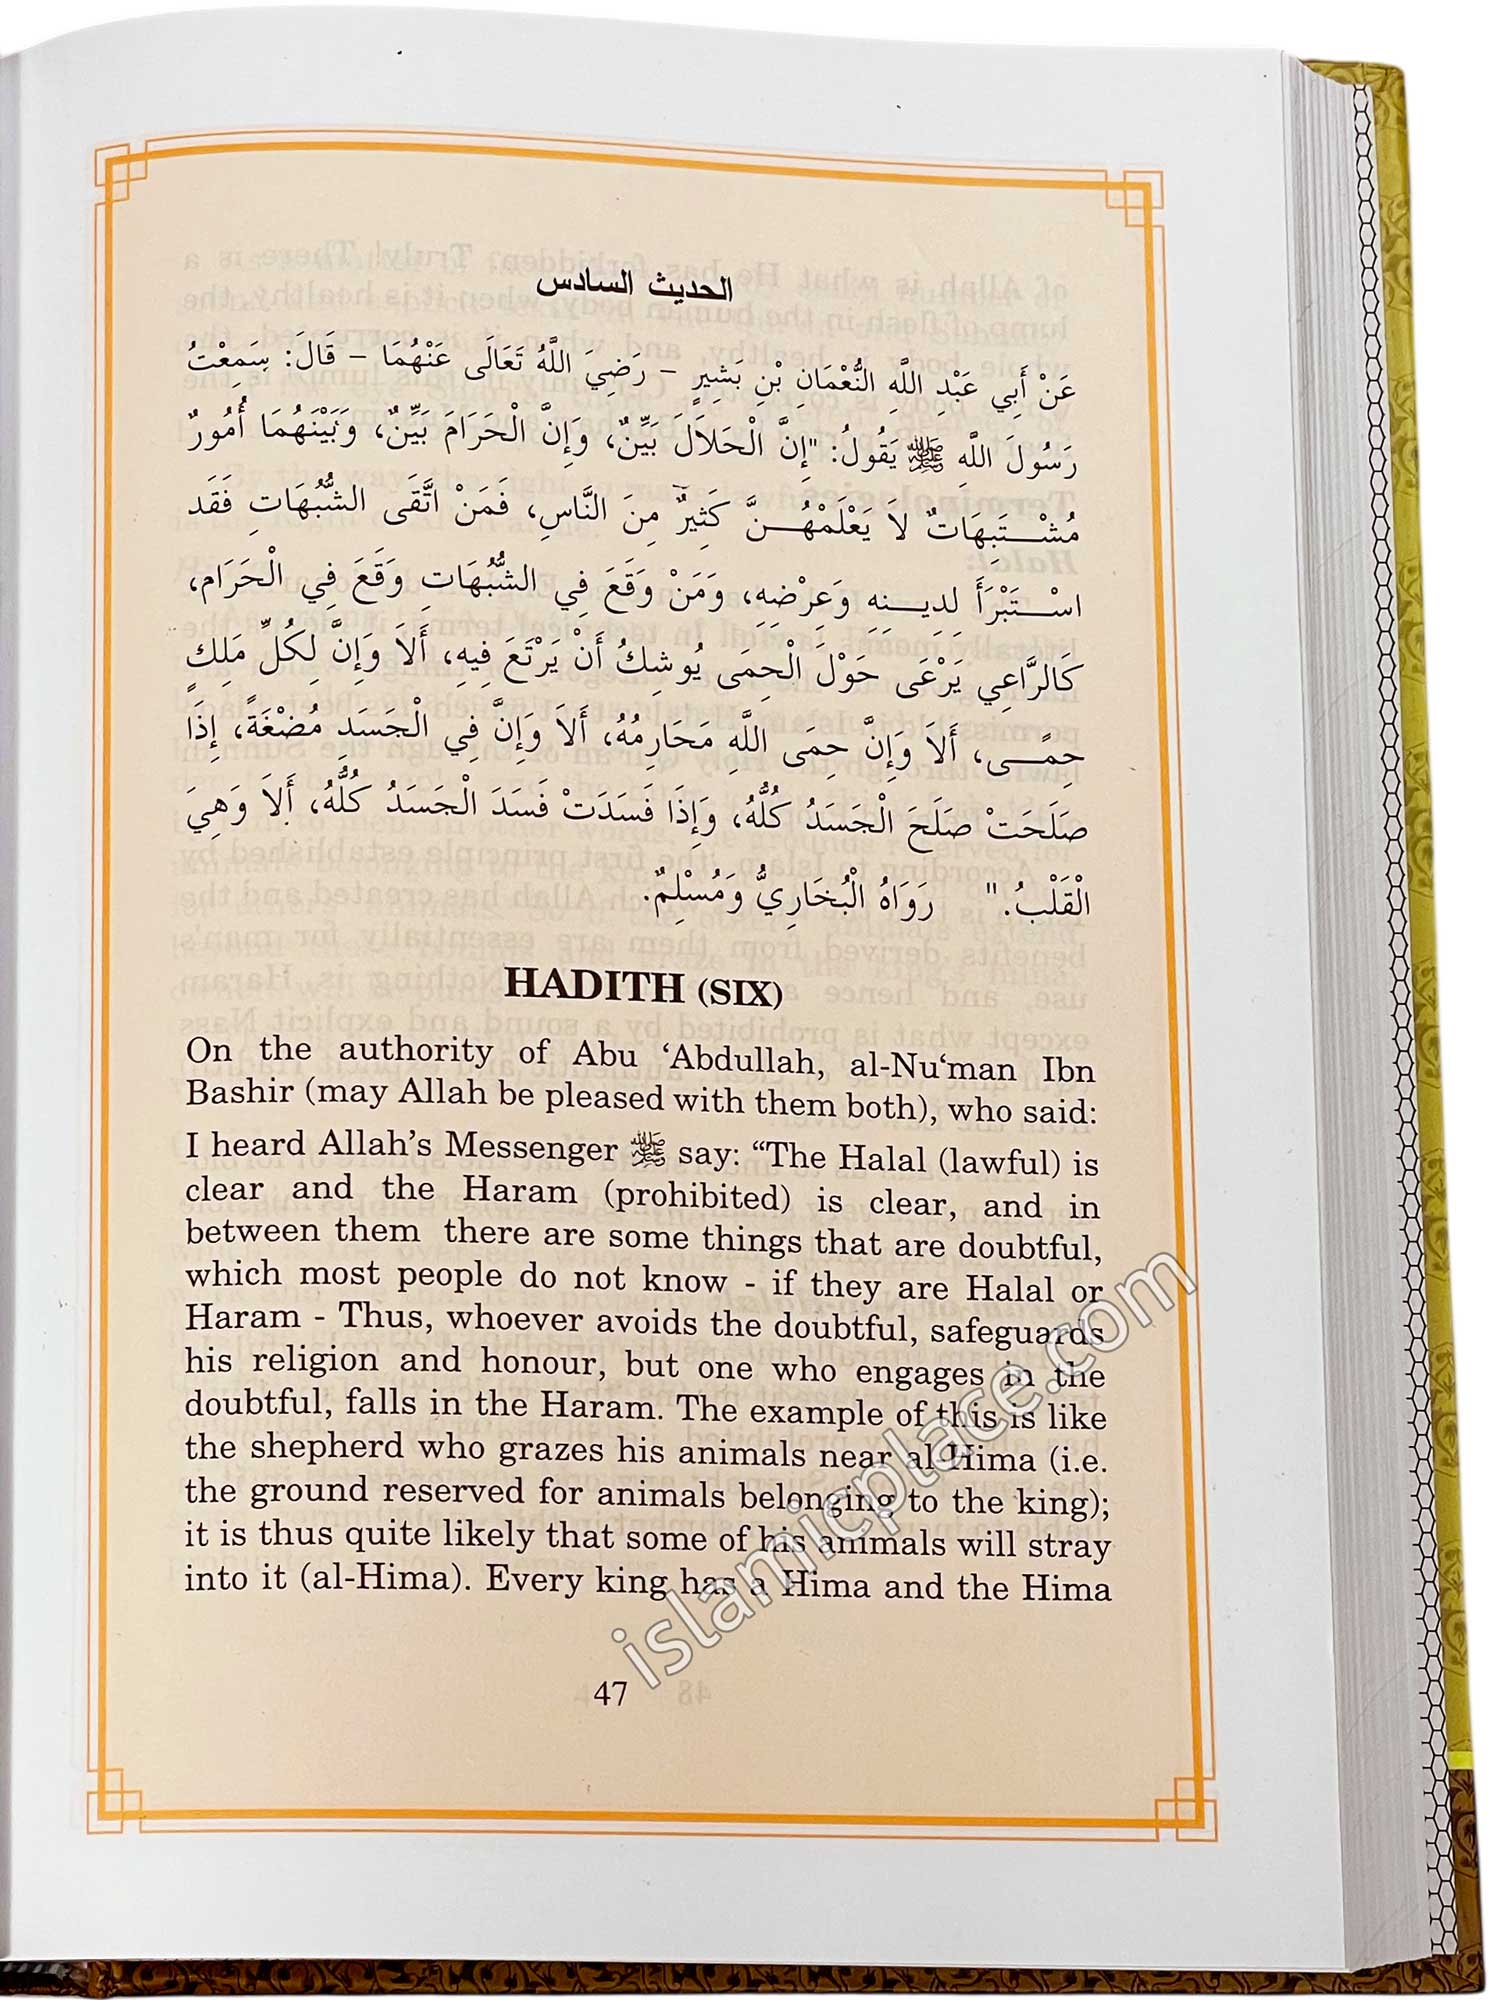 الحديث السادس
عَنْ أَبِي عَبْدِ اللَّهِ النُّعْمَانِ بْنِ بَشِيرٍ – رَضِيَ اللَّهُ تَعَالَى عَنْهُمَا – قَالَ: سَمِعْتُ
رَسُولَ اللَّهِ ﷺ يَقُولُ: "إِنَّ الْحَلَالَ بَيِّنٌ، وَإِنَّ الْحَرَامَ بَيِّنٌ، وَبَيْنَهُمَا أُمُورٌ
مُشْـتَبِهَاتٌ لَا يَعْلَمْهُـنَّ كَثِيرٌ مِنَ النَّاسِ، فَمَنْ اتَّقَى الشُّبُهَاتِ فَقَد
اسْـتَبْرَأَ لِدِيـنِهِ وَعِرْضِهِ، وَمَنْ وَقَعَ فِي الشُّبُهَاتِ وَقَعَ فِي الْحَرَامِ،
كَالرَّاعِي يَرْعَى حَوْلَ الْحِمَى يُوشِكُ أَنْ يَرْتَعَ فِيهِ، أَلَا وَإِنَّ لِكُلِّ مَلِكٍ
حِمًـى، أَلَا وَإِنَّ حِمَى اللَّهِ مَحَارِمُهُ، أَلَا وَإِنَّ فِي الْجَسَدِ مُضْغَةً، إِذَا
صَلَحَتْ صَلَحَ الْجَسَدُ كُلُّهُ، وَإِذَا فَسَدَتْ فَسَدَ الْجَسَدُ كُلُّهُ، أَلَا وَهِيَ
الْقَلْبُ." رَوَاهُ الْبُخَارِيُّ وَمُسْلِمٌ.
HADITH (SIX)
On the authority of Abu ‘Abdullah, al-Nu‘man Ibn
Bashir (may Allah be pleased with them both), who said:
I heard Allah’s Messenger ﷺ say: “The Halal (lawful) is
clear and the Haram (prohibited) is clear, and in
between them there are some things that are doubtful,
which most people do not know - if they are Halal or
Haram - Thus, whoever avoids the doubtful, safeguards
his religion and honour, but one who engages in the
doubtful, falls in the Haram. The example of this is like
the shepherd who grazes his animals near al-Hima (i.e.
the ground reserved for animals belonging to the king);
it is thus quite likely that some of his animals will stray
into it (al-Hima). Every king has a Hima and the Hima
47
islamicplace.com